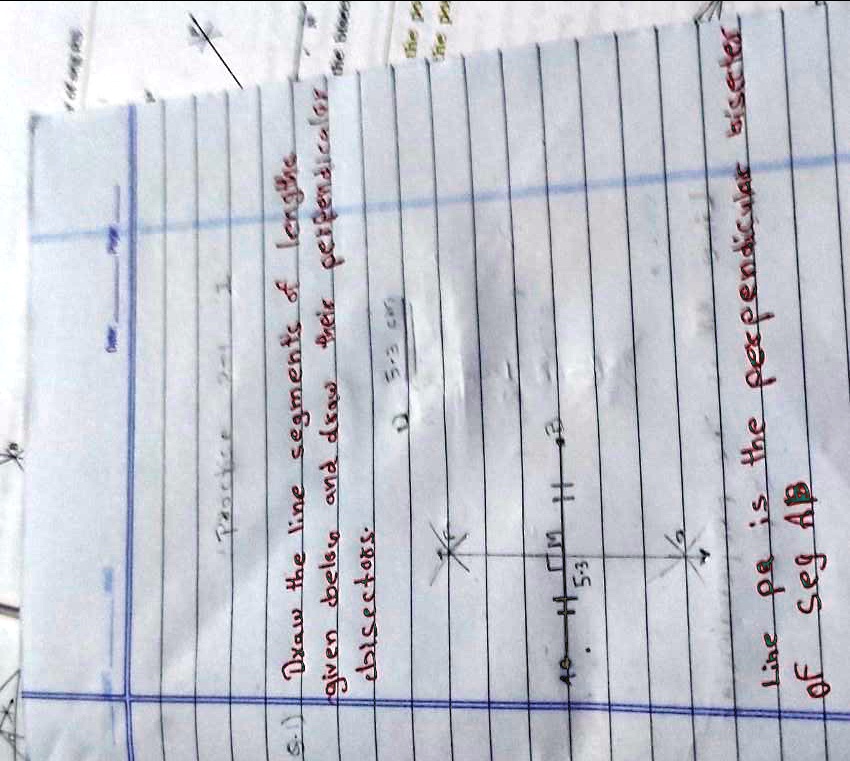 Date Page
Practice
Q.1) Draw the line segments of lengths
given below and draw their perpendicular
bisectors.
1) 5.3 cm
P
A M B
5.3
Q
Line PQ is the perpendicular bisecter
of seg AB
the
the